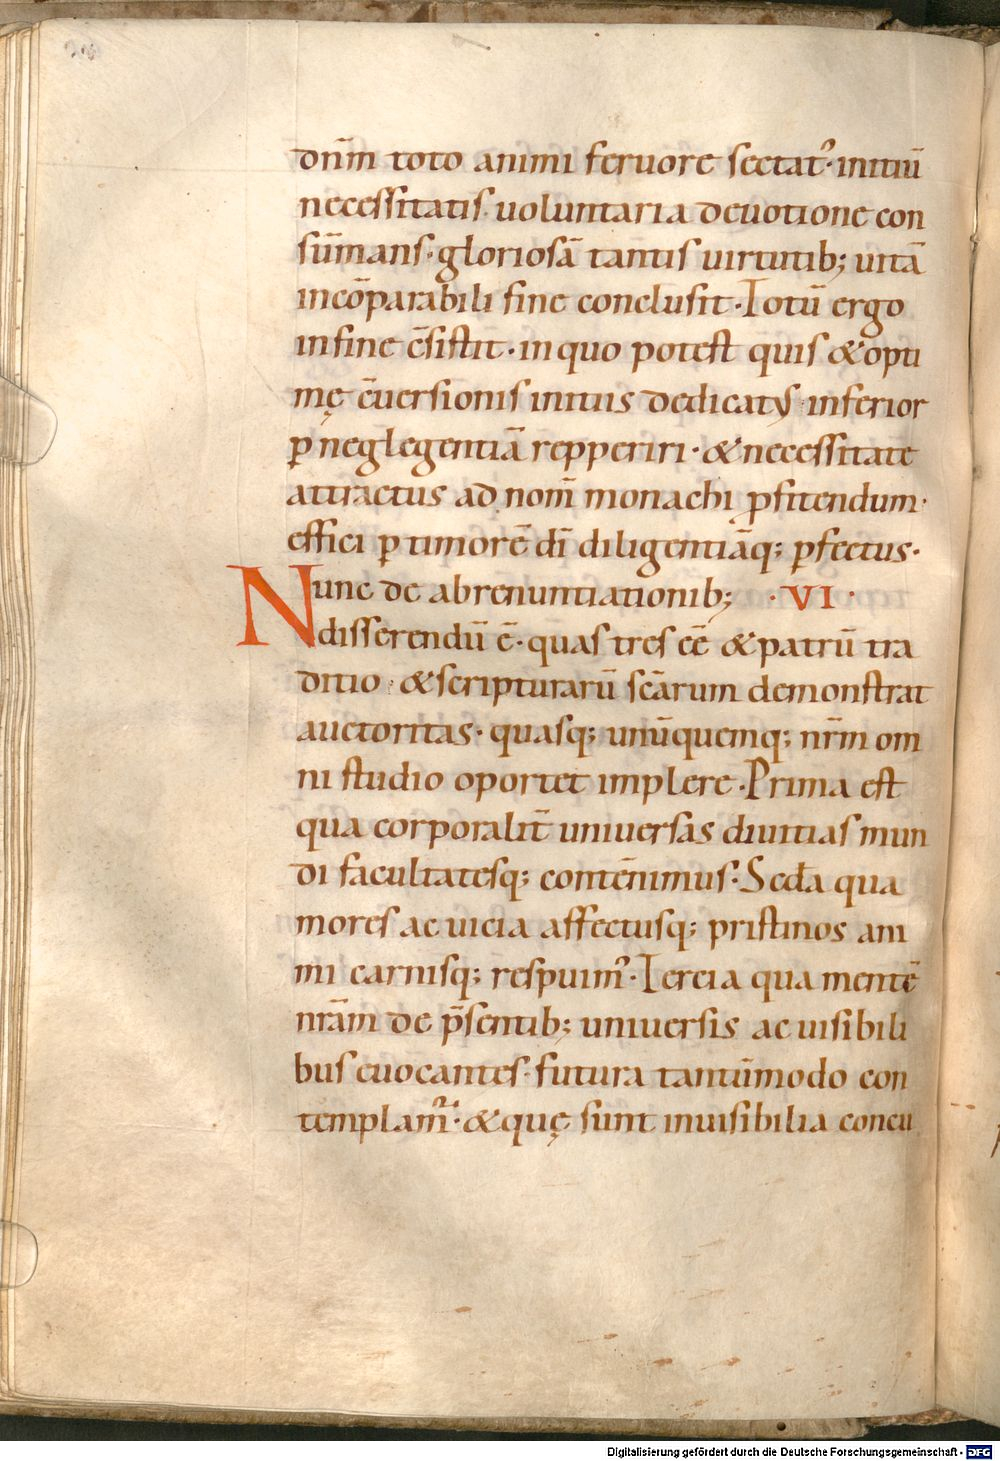 dn̄m toto animi feruore sectat᷒· initiū
necessitatis uoluntaria deuotione con
sūmans· gloriosā tantis uirtutib; uitā
incōparabili fine conclusit· Totū ergo
in fine c̄sistit· in quo potest quis & opti
mę c̄uersionis initiis dedicatꝰ inferior
ꝑ neglegentiā repperiri· & necessitate
attractus ad nom̄ monachi ꝓfitendum·
effici ꝑ timorē dī diligentiāq; ꝑfectus·
Nunc de abrenuntiationib; · VI ·
disserendū ē· quas tres eē & patrū tra
ditio · & scripturarū scārum demonstrat
auctoritas· quasq; unūquemq; nr̄m om
ni studio oportet implere· Prima est
qua corporalit̄ uniuersas diuitias mun
di facultatesq; contēnimus· Scd̄a qua
mores ac uicia affectusq; pristinos ani
mi carnisq; respuim᷒· Tercia qua mentē
nr̄am de p̄sentib; uniuersis ac uisibili
bus euocantes· futura tantūmodo con
templam̄᷒· & quę sunt inuisibilia concu
Digitalisierung gefördert durch die Deutsche Forschungsgemeinschaft - DFG